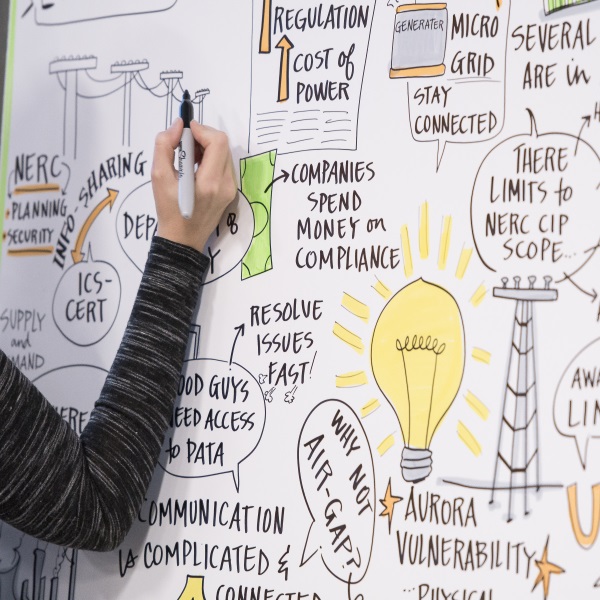 REGULATION
COST of
POWER
GENERATER
MICRO
GRID
STAY
CONNECTED
SEVERAL
ARE in
NERC
PLANNING
SECURITY
INFO-SHARING
ICS-
CERT
Sharpie
COMPANIES
SPEND
MONEY on
COMPLIANCE
THERE
LIMITS to
NERC CIP
SCOPE...
SUPPLY
and
RESOLVE
ISSUES
FAST!
GUYS
ACCESS
to DATA
WHY NOT
AIR-GAP?
COMMUNICATION
is COMPLICATED &
CONNECTED
AURORA
VULNERABILITY
...PHYSICAL